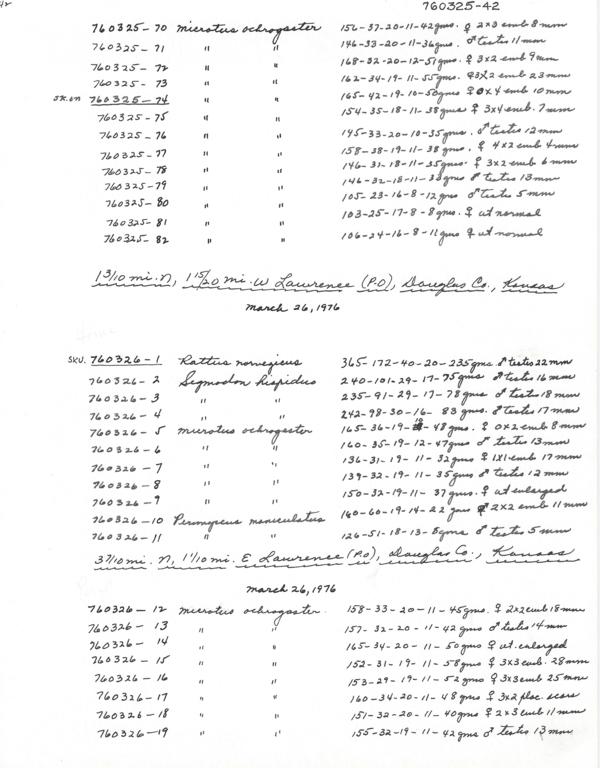 760325-42
760325-70 Microtus ochrogaster 156-37-20-11-42gms. ♀ 2x3 emb 8mm
760325-71 " " 146-33-20-11-36gms. ♂ testis 11mm
760325-72 " " 168-32-20-12-51gms. ♀ 3x2 emb 9mm
760325-73 " " 162-34-19-11-55gms. ♀ 3x2 emb 23mm
SK. on 760325-74 " " 165-42-19-10-50gms ♀ 0x4 emb 10mm
760325-75 " " 154-35-18-11-38gms ♀ 3x4 emb. 7mm
760325-76 " " 145-33-20-10-35gms. ♂ testis 12mm
760325-77 " " 158-38-19-11-38gms. ♀ 4x2 emb 4mm
760325-78 " " 146-31-18-11-35gms. ♀ 3x2 emb 6mm
760325-79 " " 146-32-18-11-33gms ♂ testis 13mm
760325-80 " " 105-23-16-8-12gms ♂ testis 5mm
760325-81 " " 103-25-17-8-8gms. ♀ ut normal
760325-82 " " 106-24-16-8-11gms ♀ ut normal
1 3/10 mi. N, 1 15/20 mi. W Lawrence (P.O), Douglas Co., Kansas
March 26, 1976
SKU. 760326-1 Rattus norvegicus 365-172-40-20-235gms ♂ testis 22mm
760326-2 Sigmodon hispidus 240-101-29-17-75gms ♂ testis 16mm
760326-3 " " 235-91-29-17-78gms ♂ testis 18mm
760326-4 " " 242-98-30-16-83gms. ♂ testis 17mm
760326-5 Microtus ochrogaster 165-36-19- -48gms. ♀ 0x2 emb 8mm
760326-6 " " 160-35-19-12-47gms ♂ testis 13mm
760326-7 " " 136-31-19-11-32gms ♀ 1x1 emb 17mm
760326-8 " " 139-32-19-11-35gms ♂ testis 12mm
760326-9 " " 150-32-19-11-37gms. ♀ ut enlarged
760326-10 Peromyscus maniculatus 160-60-19-14-22gms ♀ 2x2 emb 11mm
760326-11 " " 126-51-18-13- gms ♂ testis 5mm
3 7/10 mi. N, 1 1/10 mi. E Lawrence (P.O), Douglas Co., Kansas
March 26, 1976
760326-12 Microtus ochrogaster. 158-33-20-11-45gms. ♀ 2x2 emb 18mm
760326-13 " " 157-32-20-11-42gms ♂ testis 14mm
760326-14 " " 165-34-20-11-50gms ♀ ut. enlarged
760326-15 " " 152-31-19-11-58gms ♀ 3x3 emb. 28mm
760326-16 " " 153-29-19-11-52gms ♀ 3x3 emb 25mm
760326-17 " " 160-34-20-11-48gms ♀ 3x2 plac. scars
760326-18 " " 151-32-20-11-40gms ♀ 2x3 emb 11mm
760326-19 " " 155-32-19-11-42gms ♂ testis 13mm